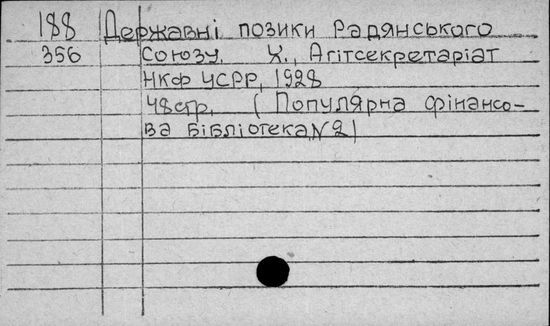 188 Державні позики Радянського
356 Союзу. Х., Агітсекретаріат
НКФ УСРР, 1928
48стр. (Популярна фінансо-
ва бібліотека, №2)